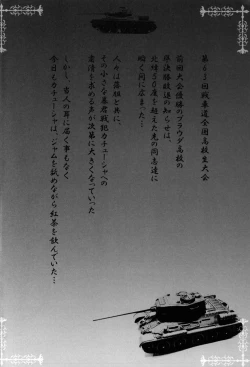 第63回戦車道全国高校生大会
前回大会優勝のプラウダ高校の
準決勝敗退の知らせは、
北緯50度を超えた先の同志達に
瞬く間に広まった。
人々は落胆と共に、
その小さな暴君戦犯カチューシャへの
粛清を求める声が次第に大きくなっていった
しかし、当人の耳に届く事もなく
今日もカチューシャは、ジャムを舐めながら紅茶を飲んでいた…